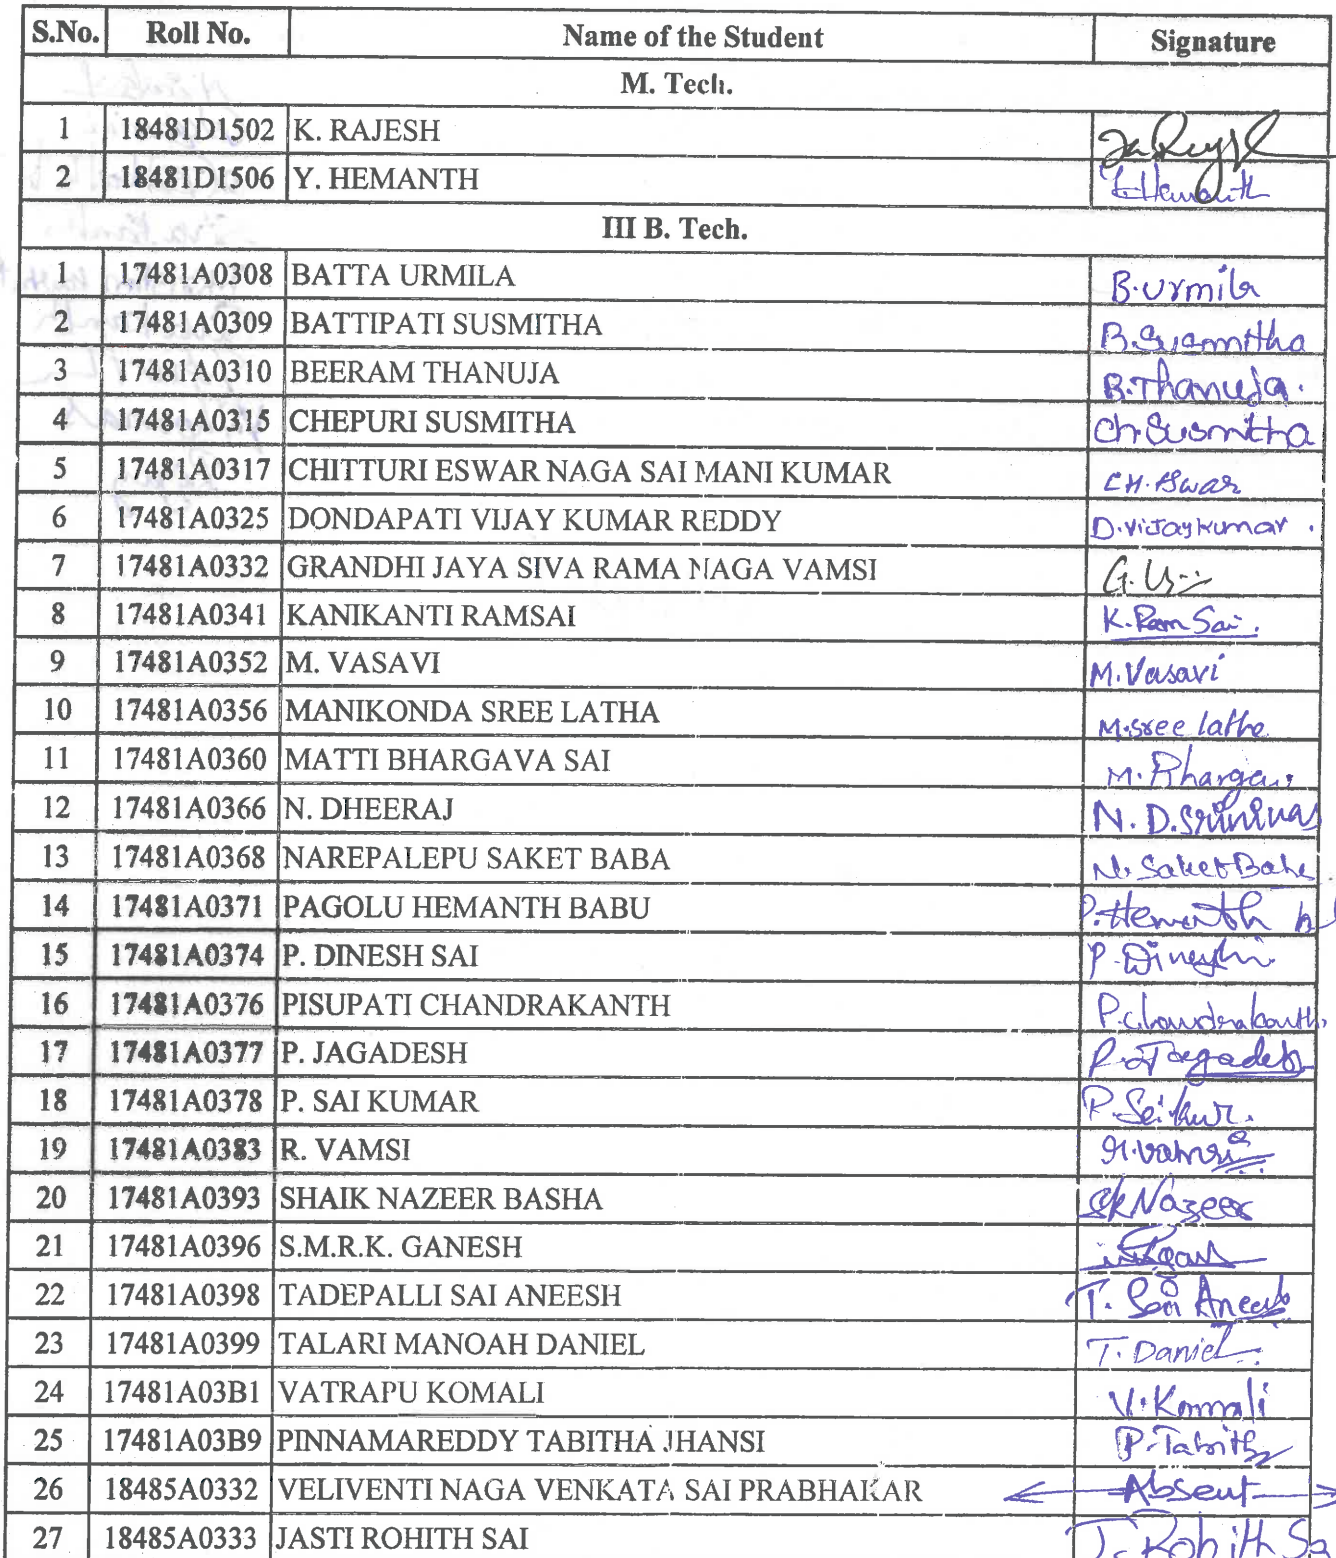 S.No. Roll No. Name of the Student Signature
M. Tech.
1 18481D1502 K. RAJESH
2 18481D1506 Y. HEMANTH Y. Hemanth
III B. Tech.
1 17481A0308 BATTA URMILA B.Urmila
2 17481A0309 BATTIPATI SUSMITHA B.Susmitha
3 17481A0310 BEERAM THANUJA B.Thanuja.
4 17481A0315 CHEPURI SUSMITHA Ch.Susmitha
5 17481A0317 CHITTURI ESWAR NAGA SAI MANI KUMAR CH.Eswar
6 17481A0325 DONDAPATI VIJAY KUMAR REDDY D.Vijaykumar.
7 17481A0332 GRANDHI JAYA SIVA RAMA NAGA VAMSI
8 17481A0341 KANIKANTI RAMSAI K.Ram Sai.
9 17481A0352 M. VASAVI M.Vasavi
10 17481A0356 MANIKONDA SREE LATHA M.sree latha
11 17481A0360 MATTI BHARGAVA SAI M.Bhargav
12 17481A0366 N. DHEERAJ N.D.Srinivas
13 17481A0368 NAREPALEPU SAKET BABA N.Saket Baba
14 17481A0371 PAGOLU HEMANTH BABU P.Hemanth b
15 17481A0374 P. DINESH SAI P.Dinesh
16 17481A0376 PISUPATI CHANDRAKANTH P.Chandrakanth
17 17481A0377 P. JAGADESH P.Jagadesh
18 17481A0378 P. SAI KUMAR P.Saikumar.
19 17481A0383 R. VAMSI R.vamsi
20 17481A0393 SHAIK NAZEER BASHA Sk Nazeer
21 17481A0396 S.M.R.K. GANESH
22 17481A0398 TADEPALLI SAI ANEESH T. Sai Aneesh
23 17481A0399 TALARI MANOAH DANIEL T. Daniel
24 17481A03B1 VATRAPU KOMALI V.Komali
25 17481A03B9 PINNAMAREDDY TABITHA JHANSI P.Tabitha
26 18485A0332 VELIVENTI NAGA VENKATA SAI PRABHAKAR Absent
27 18485A0333 JASTI ROHITH SAI J. Rohith Sa